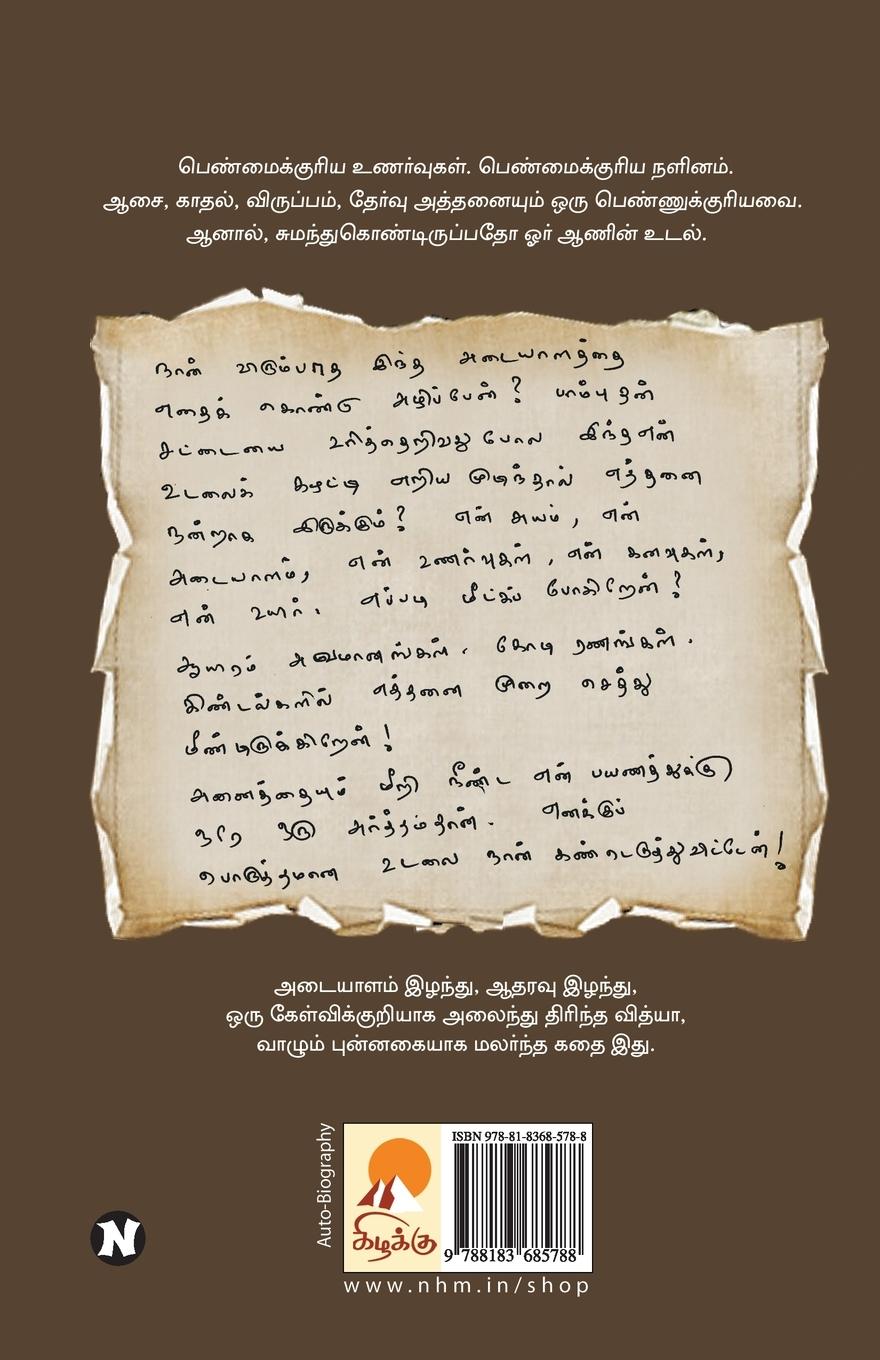 பெண்மைக்குரிய உணர்வுகள். பெண்மைக்குரிய நளினம்.
ஆசை, காதல், விருப்பம், தேர்வு அத்தனையும் ஒரு பெண்ணுக்குரியவை.
ஆனால், சுமந்துகொண்டிருப்பதோ ஓர் ஆணின் உடல்.
நான் விரும்பாத இந்த அடையாளத்தை
எதைக் கொண்டு அழிப்பேன்? பாம்பு தன்
சட்டையை உரித்தெறிவது போல இந்த என்
உடலைக் கழட்டி எறிய முடிந்தால் எத்தனை
நன்றாக இருக்கும்? என் சுயம், என்
அடையாளம், என் உணர்வுகள், என் கனவுகள்,
என் உயிர். எப்படி மீட்கப் போகிறேன்?
ஆயிரம் அவமானங்கள். கோடி ரணங்கள்.
கிண்டல்களில் எத்தனை முறை செத்து
மீண்டிருக்கிறேன்!
அனைத்தையும் மீறி நீண்ட என் பயணத்துக்கு
ஒரே ஒரு அர்த்தம்தான். எனக்குப்
பொருத்தமான உடலை நான் கண்டெடுத்துவிட்டேன்!
அடையாளம் இழந்து, ஆதரவு இழந்து,
ஒரு கேள்விக்குறியாக அலைந்து திரிந்த வித்யா,
வாழும் புன்னகையாக மலர்ந்த கதை இது.
Auto-Biography
ISBN 978-81-8368-578-8
கிழக்கு
9 788183 685788
N
www.nhm.in/shop